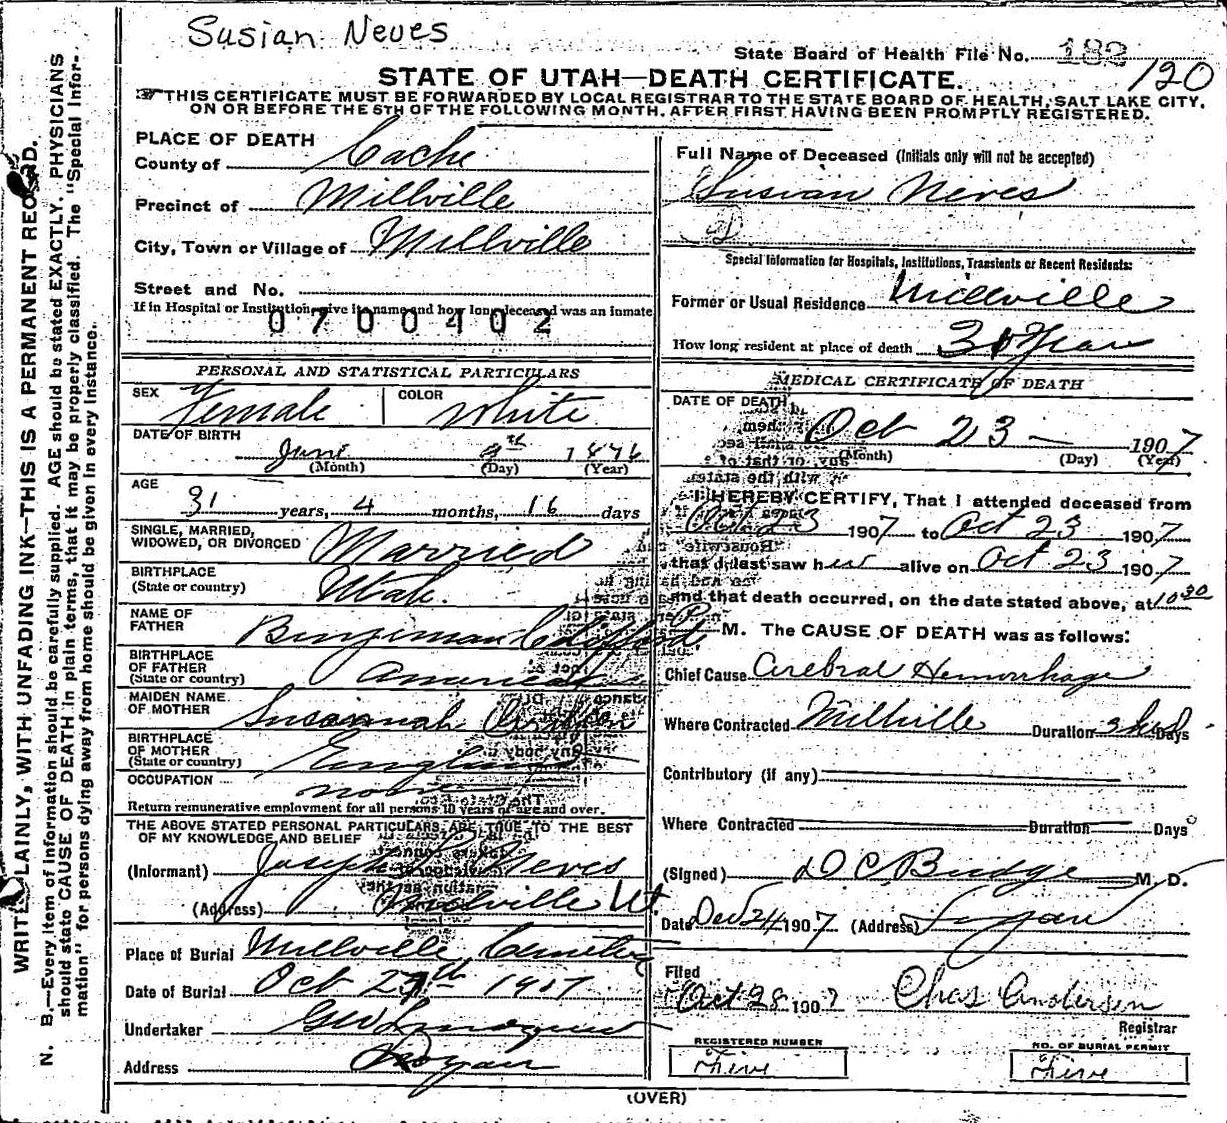 Susian Neves
State Board of Health File No. 182
120
STATE OF UTAH—DEATH CERTIFICATE.
☞THIS CERTIFICATE MUST BE FORWARDED BY LOCAL REGISTRAR TO THE STATE BOARD OF HEALTH, SALT LAKE CITY,
ON OR BEFORE THE 5TH OF THE FOLLOWING MONTH, AFTER FIRST HAVING BEEN PROMPTLY REGISTERED.
WRITE PLAINLY, WITH UNFADING INK—THIS IS A PERMANENT RECORD.
N. B.—Every item of information should be carefully supplied. AGE should be stated EXACTLY. PHYSICIANS
should state CAUSE OF DEATH in plain terms, that it may be properly classified. The "Special Infor-
mation" for persons dying away from home should be given in every instance.
PLACE OF DEATH
County of Cache
Precinct of Millville
City, Town or Village of Millville
Street and No.
If in Hospital or Institution, give its name and how long deceased was an inmate
0700402
PERSONAL AND STATISTICAL PARTICULARS
SEX Female COLOR White
DATE OF BIRTH
June 9th 1876
(Month) (Day) (Year)
AGE
31 years, 4 months, 16 days
SINGLE, MARRIED,
WIDOWED, OR DIVORCED Married
BIRTHPLACE
(State or country) Utah.
NAME OF
FATHER Benjiman
BIRTHPLACE
OF FATHER
(State or country) America
MAIDEN NAME
OF MOTHER Susannah
BIRTHPLACE
OF MOTHER
(State or country) England
OCCUPATION none
Return remunerative employment for all persons 10 years of age and over.
THE ABOVE STATED PERSONAL PARTICULARS ARE TRUE TO THE BEST
OF MY KNOWLEDGE AND BELIEF
(Informant) Joseph S Neves
(Address) Millville Ut.
Place of Burial Millville Cemetery
Date of Burial Oct 27th 1907
Undertaker G W
Address Logan
Full Name of Deceased (Initials only will not be accepted)
Susian Neves
Special Information for Hospitals, Institutions, Transients or Recent Residents:
Former or Usual Residence Millville
How long resident at place of death 31 Year
MEDICAL CERTIFICATE OF DEATH
DATE OF DEATH
Oct 23 1907
(Month) (Day) (Year)
I HEREBY CERTIFY, That I attended deceased from
Oct 23 1907 to Oct 23 1907
that I last saw her alive on Oct 23 1907
and that death occurred, on the date stated above, at 10 30
P M. The CAUSE OF DEATH was as follows:
Chief Cause Cerebral Hemorrhage
Where Contracted Millville Duration Days
Contributory (if any)
Where Contracted Duration Days
(Signed) D. C. Budge M. D.
Date 24 1907 (Address) Logan
Filed
Oct 28 1907 Chas Anderson
Registrar
REGISTERED NUMBER
Five
NO. OF BURIAL PERMIT
Five
(OVER)